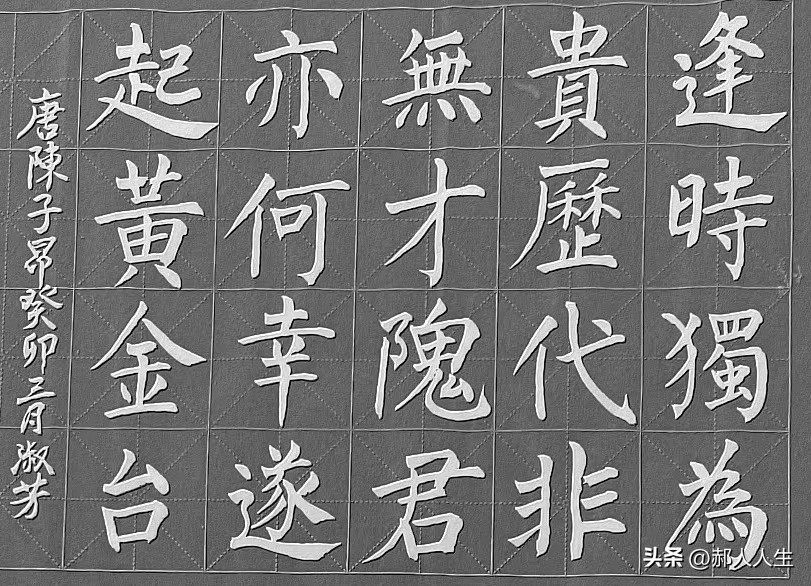 逢時獨為
貴歷代非
無才隗君
亦何幸遂
起黃金台
唐陳子昂癸卯三月淑芳
头条 @郝人人生